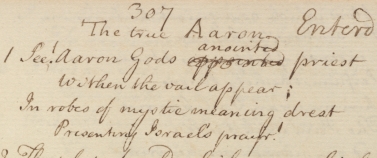 307
The true Aaron Enterd
anointed
1 See! Aaron Gods appointed priest
Withen the vail appear;
In robes of mystic meaning drest
Presenting Israel's prair!